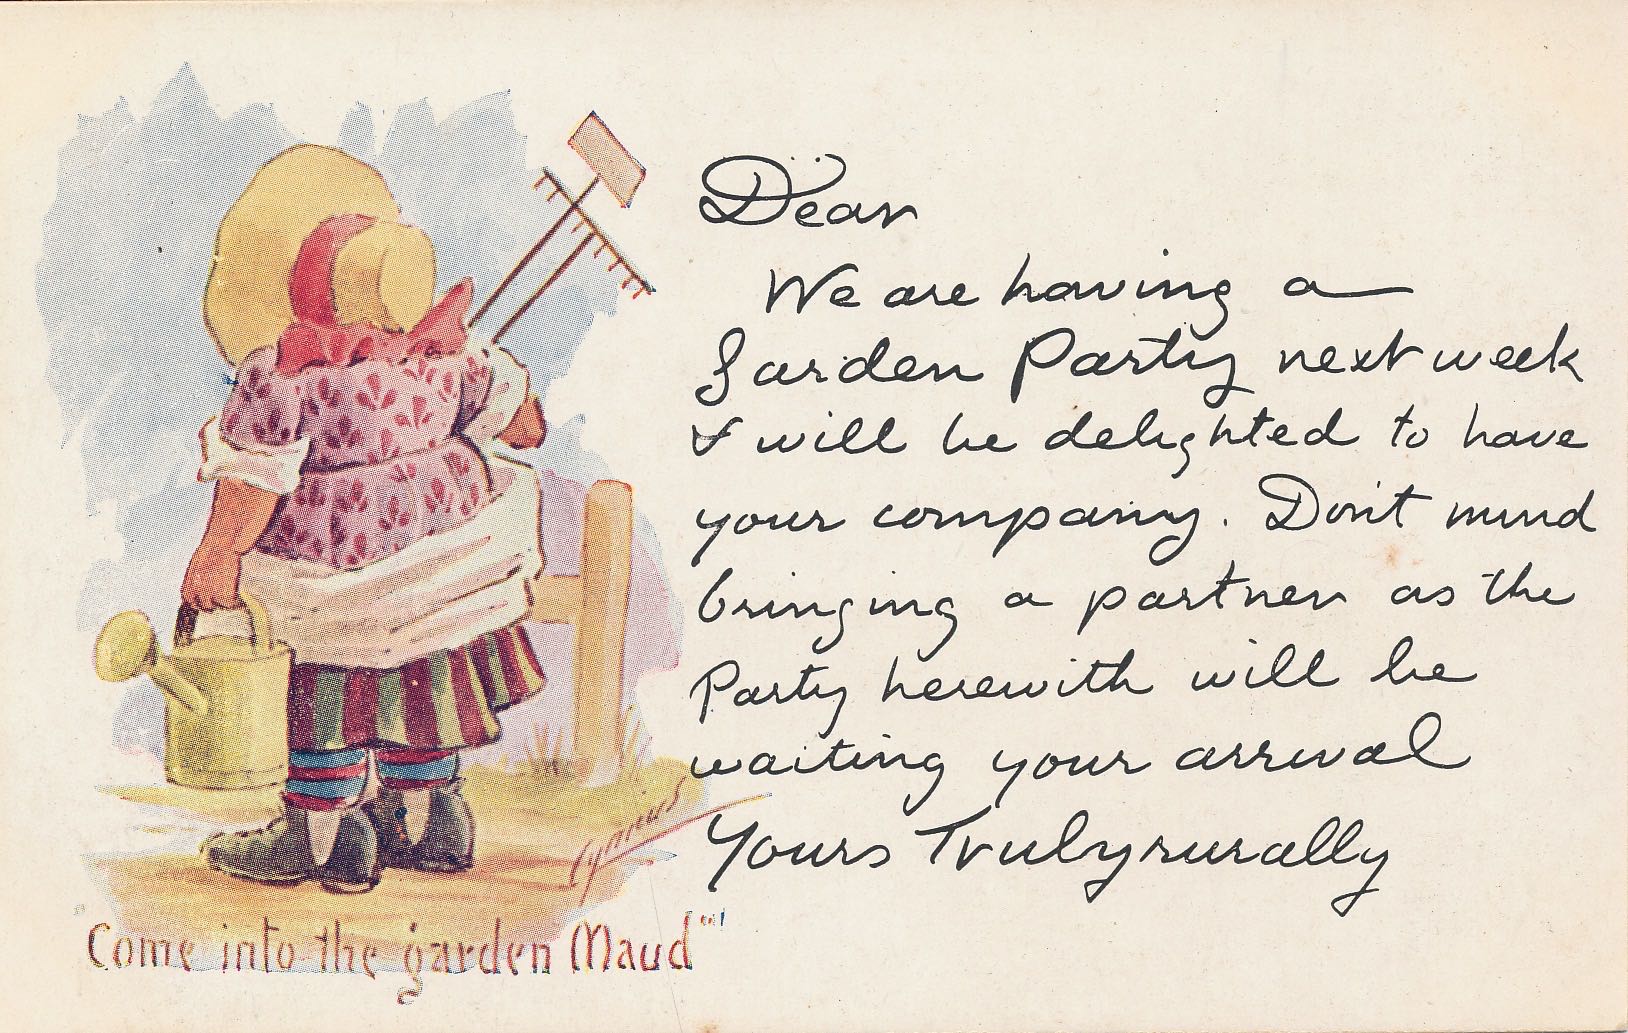 Dear
We are having a
Garden Party next week
& will be delighted to have
your company. Don't mind
bringing a partner as the
Party herewith will be
waiting your arrival
Yours Trulyrurally
Cynicus
"Come into the garden Maud"